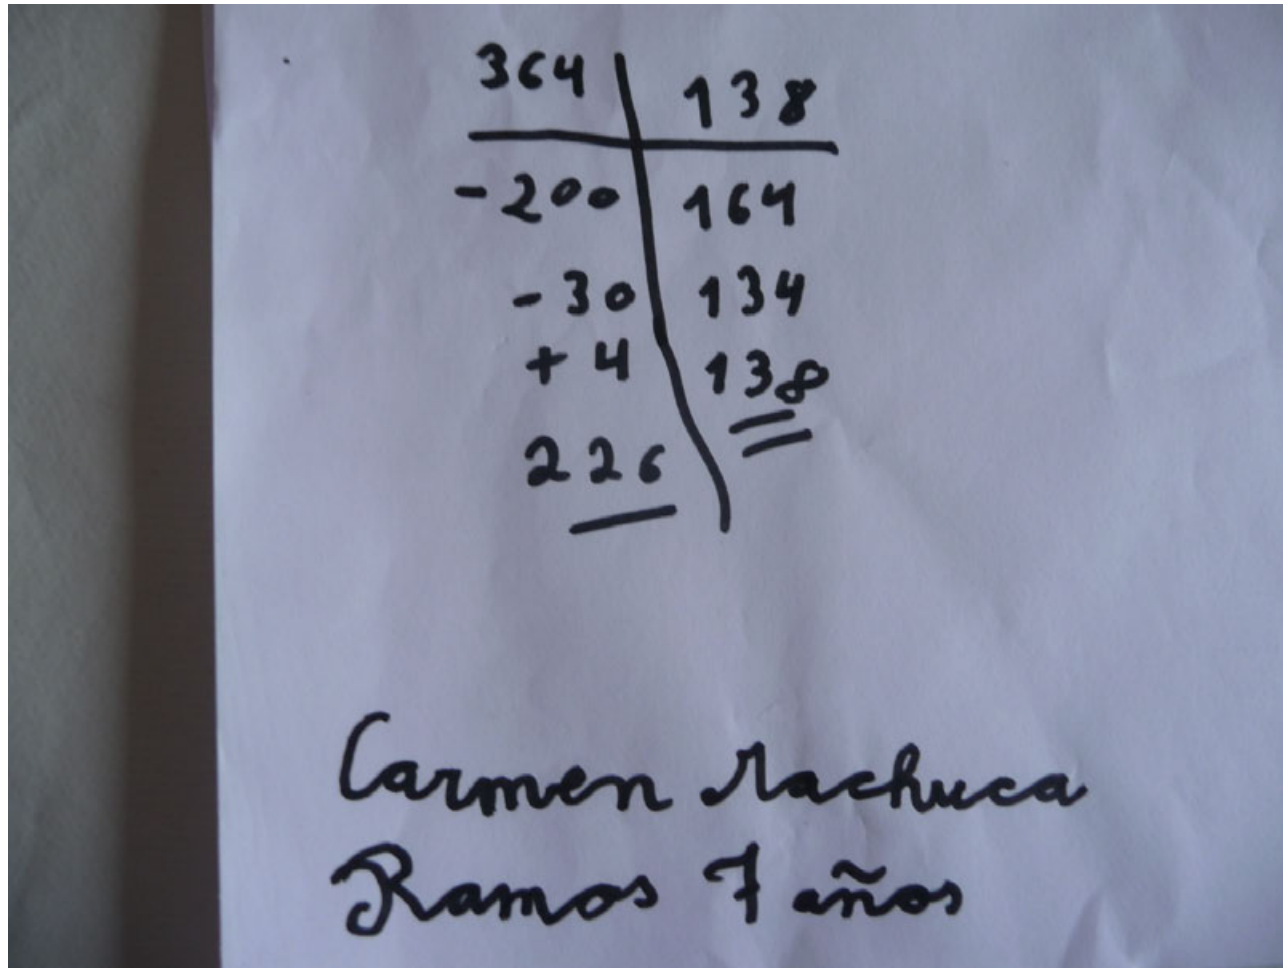 364 138
-200 164
-30 134
+4 138
226
Carmen Machuca
Ramos 7 años